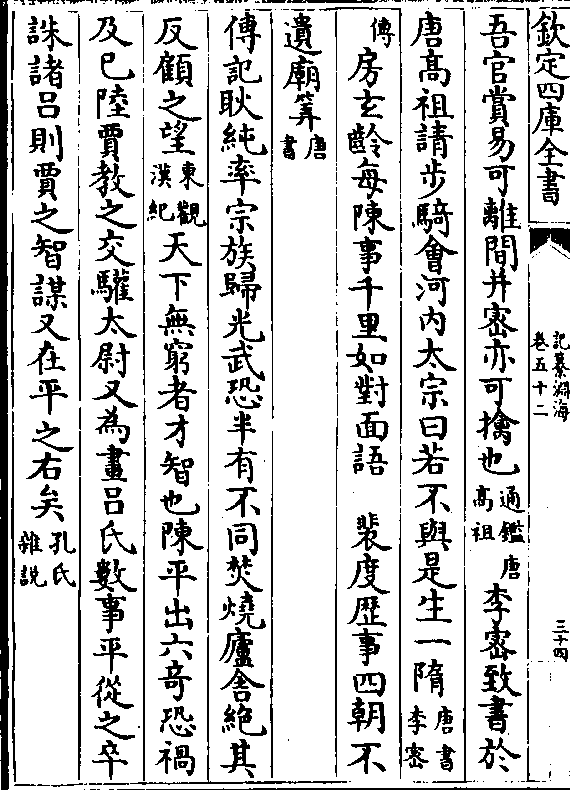 欽定四庫全書
記纂淵海
卷五十二
三十四
吾官賞易可離間并宻亦可擒也通鑑唐髙祖李宻致書於
唐髙祖請步騎會河内太宗曰若不與是生一隋唐書李宻
傳房玄齡每陳事千里如對面語 裴度歴事四朝不
遺廟筭唐書
傳記耿純率宗族歸光武恐半有不同焚燒廬舍絶其
反顧之望東觀漢紀天下無窮者才智也陳平出六竒恐禍
及已陸賈教之交驩太尉又為畫吕氏數事平從之卒
誅諸吕則賈之智謀又在平之右矣孔氏雜説